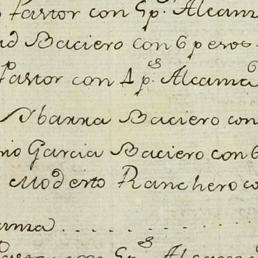 Pastor con 5 p.s Alcam
ad Baciero con 6 pesos
Pastor con 4 p.s Alcama
Ybarra Baciero con
nio Garcia Baciero con 6
Moderto Ranchero co
ama